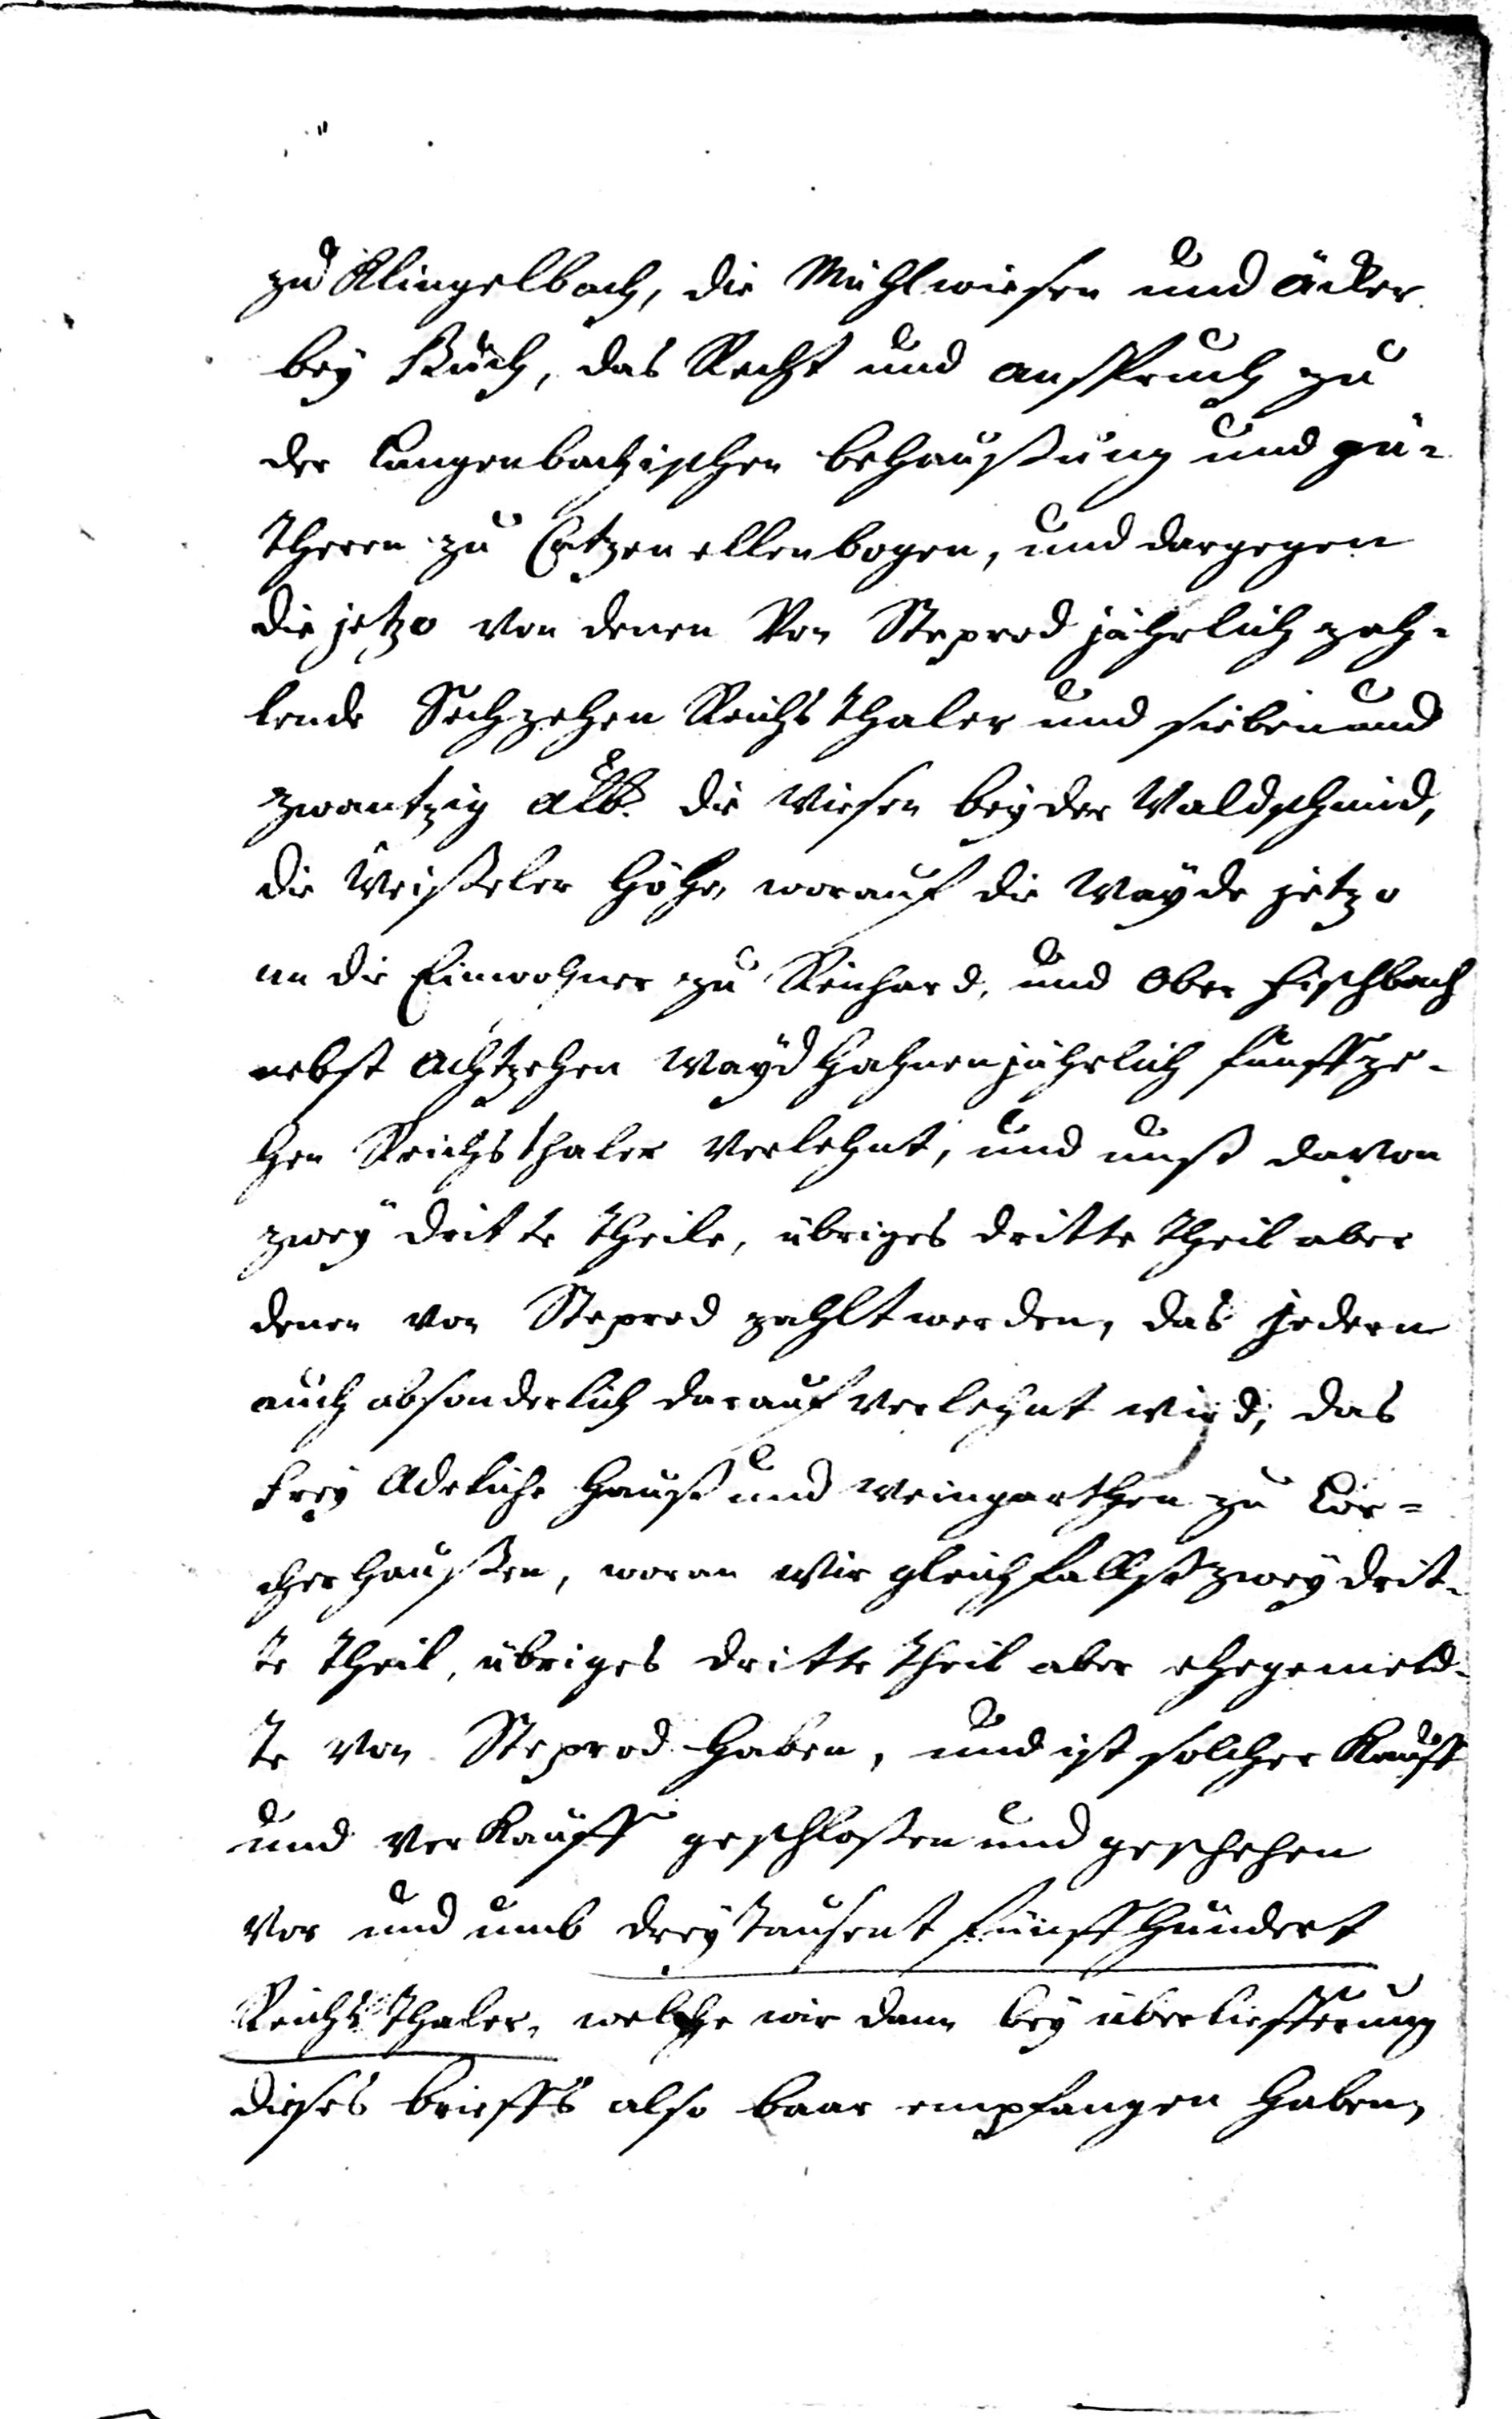 zu Klingelbach, die Mühlwiesen und äcker
bey Buch, das Recht und anspruch zu
der Langenbachischen behaußung und gü-
thern zu Catzenellenbogen, und dargegen
die jetzo von denen Von Steprod jährlich zah-
lende Sechzehen Reichsthaler und sieben und
zwantzig alb. die Wiesen bey der Waldschmid,
die Weißeler Höhe, worauf die Wayde jetzo
an die Einwohner zu Reichard, und Ober Fischbach
nebst achtzehen Wayd Hahnen jährlich funffze-
hen Reichsthaler verlehnt, und unß davon
zwey dritte Theile, übriges dritte Theil aber
denen von Steprod zahlt werden, das jedern
auch absonderlich darauf verlehnt wird, das
frey Adeliche Hauß und Weingarthen zu Lor-
cherhaußen, woran Wir gleichfallß zwey drit-
te Theil, übriges dritte Theil aber ehegemeld-
te von Steprod haben, und ist solcher Kauff
und verKauff geschloßen und geschehen
vor und umb dreytausent fünffhundert
Reichsthaler, welche wir dann bey überliefferung
dieses brieffs also baar empfangen haben,